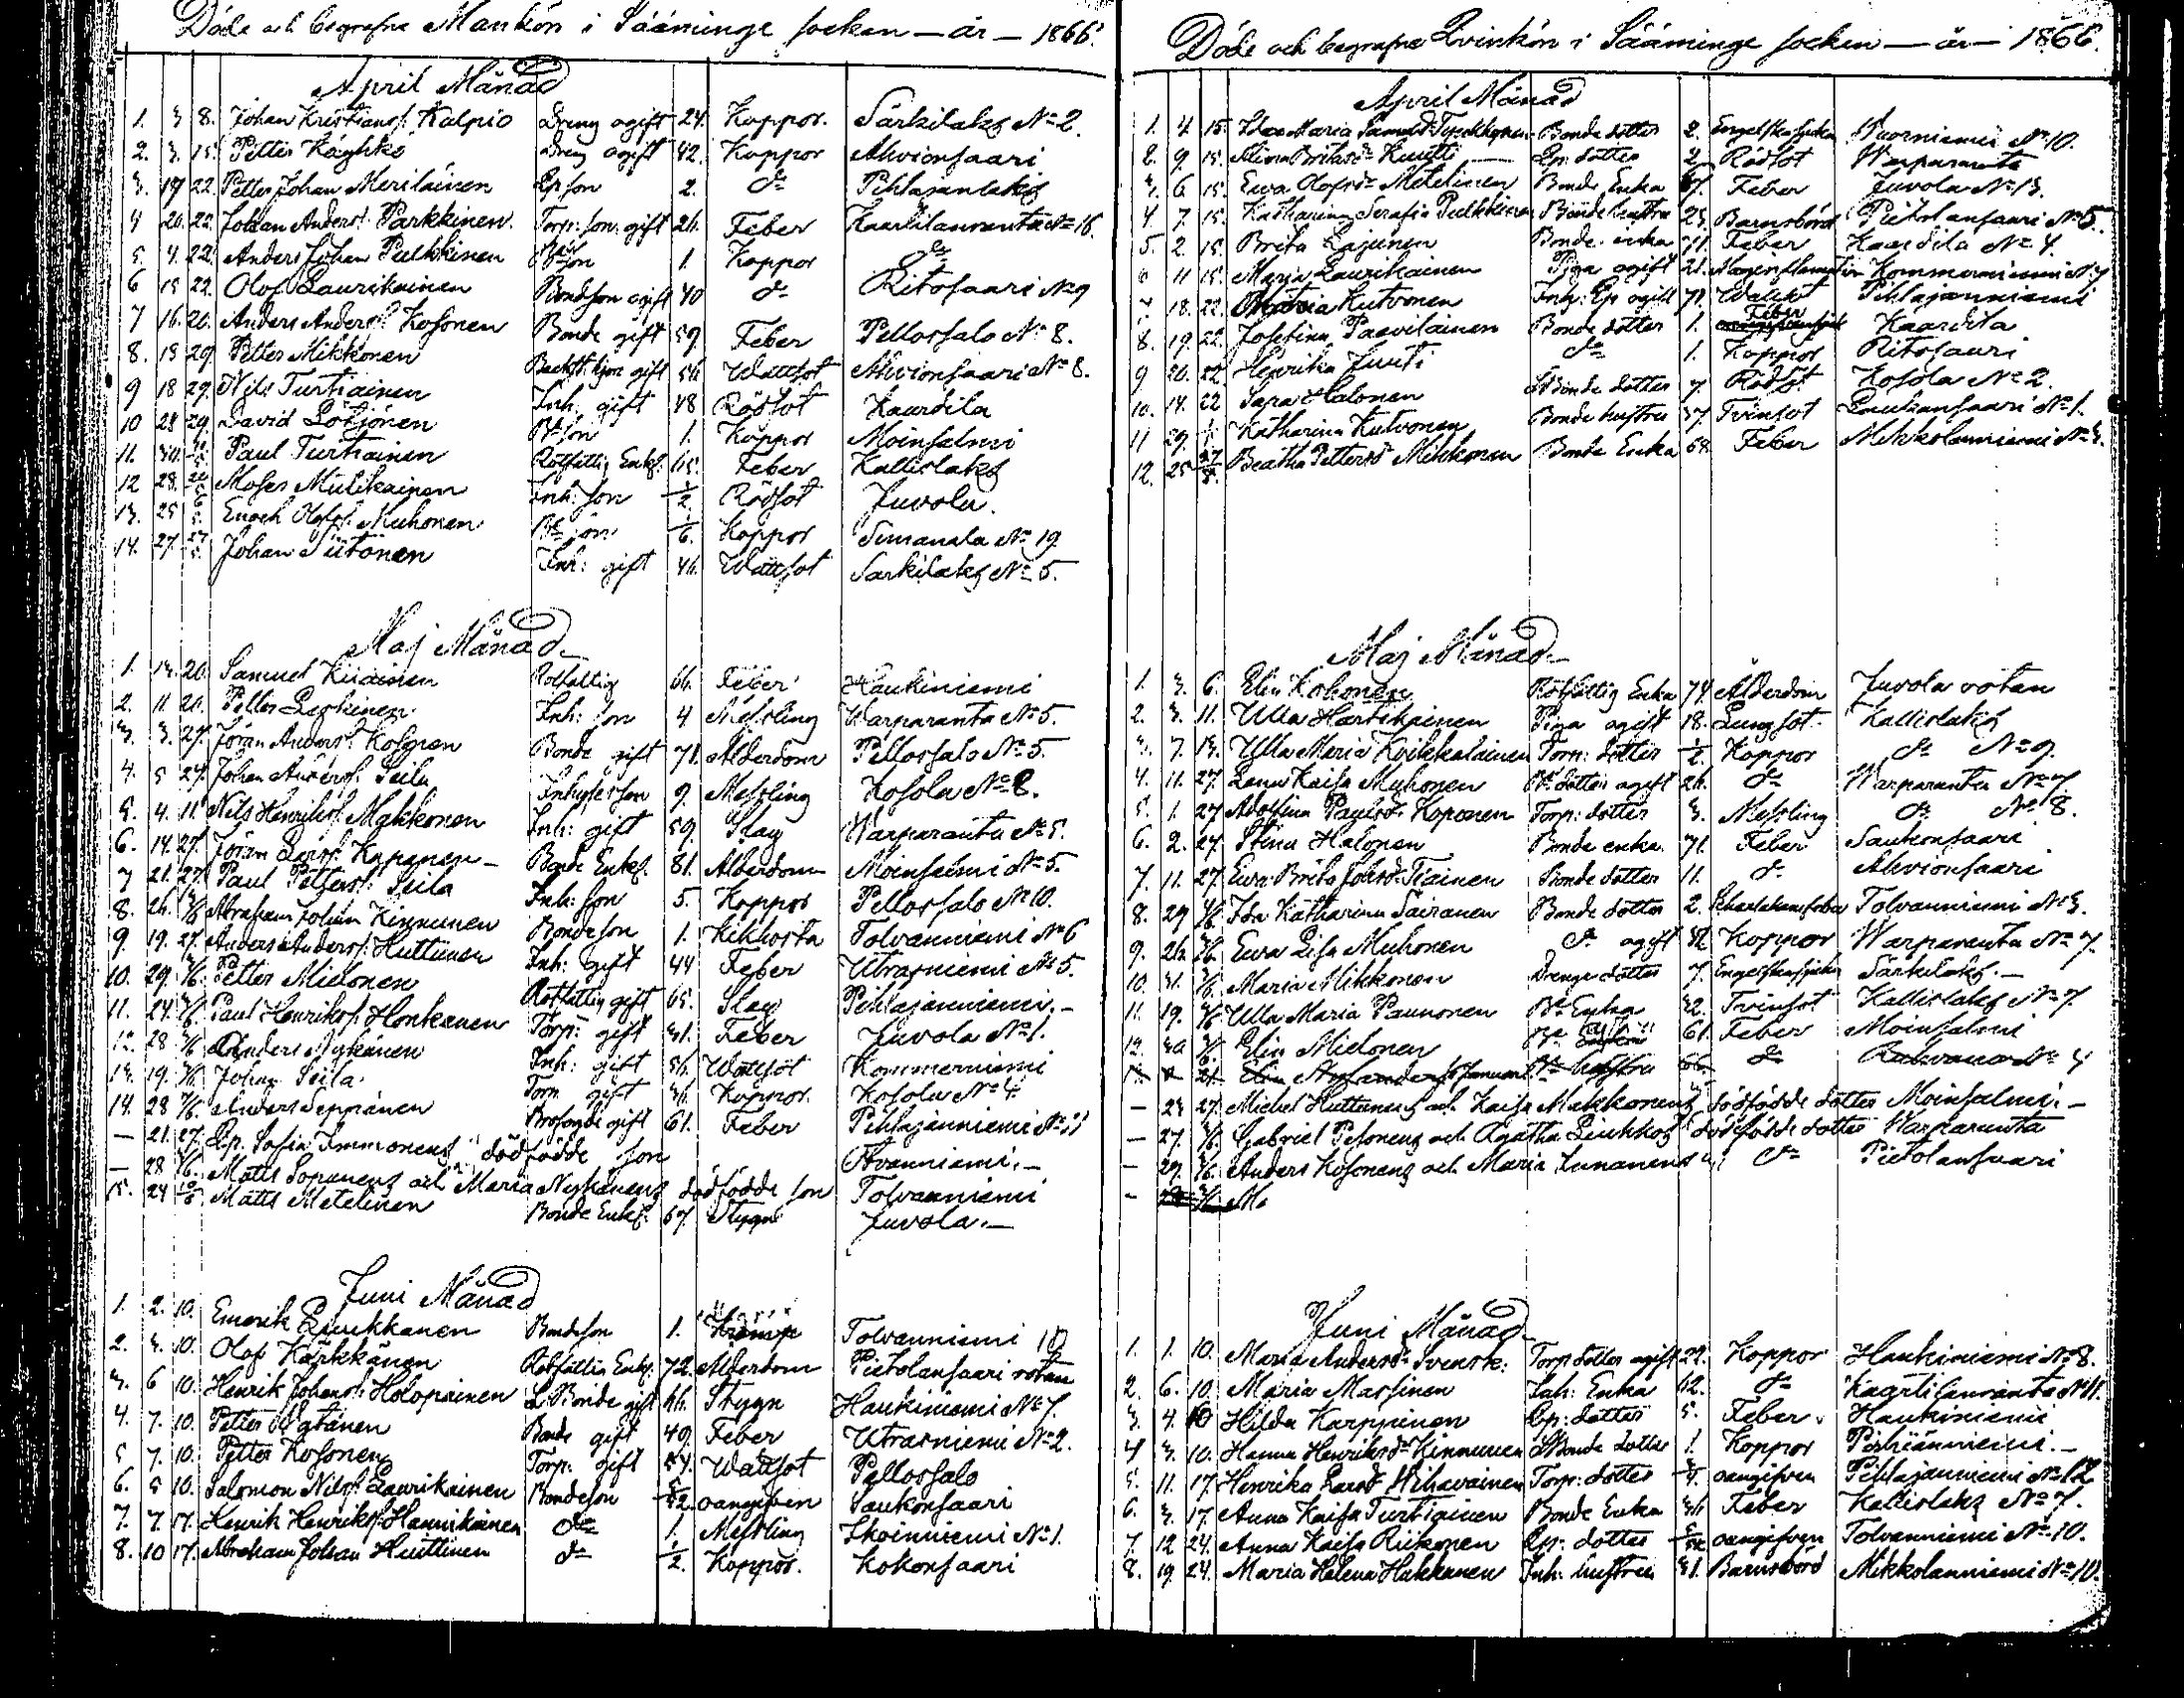 Döde och begrafne Mankön i Sääminge socken — år — 1866.
April Månad
1. 3 8. Johan Kristians: Kalpio Dreng ogift 24. Koppor. Särkilaks No 2.
2. 3. 15. Petter Käyhkö Dreng ogift 42. Koppor Ahvionsaari
3. 19 22. Petter Johan Meriläinen Ep son 2. do Pihlajanlaks
4 20. 22. Johan Anders: Parkkinen. Torp: son: gift 26. Feber Kaartilanranta No 16.
5. 4. 22. Anders Johan Pulkkinen son 1. Koppor do
6 15 22. Olof Laurikainen Bondeson ogift 40 do Ritosaari No 9
7 16. 26. Anders Anders: Kosonen Bonde gift 59. Feber Pellossalo No 8.
8. 15 29. Petter Mikkonen gift 56 Wattsot Ahvionsaari No 8.
9 18 29. Nils Turtiainen Inh: gift 48 Rödsot Kaardila
10 28 29. David Lötjönen son 1. Koppor Moinsalmi
11. 30. Paul Turtiainen Rotfattig Enkl. 65. Feber Kallislaks
12 28. Moses Mulikainen Inh: son 1/2. Rödsot Juvola.
13. 25 Enoch Olofs: Muhonen son 1/6. Koppor Simanala No 19
14. 27. 27/5. Johan Siitonen Inh: gift 46. Wattsot Särkilaks No 5.
Maj Månad
1. 13. 20. Samuel Kiiainen Rotfattig 66. Feber Haukiniemi
2. 11 20. Petter Inh: son 4 Messling Warparanta No 5.
3. 3. 27. Jöran Anders: Kosonen Bonde gift 71. Alderdom Pellossalo No 5.
4. 5 27. Johan Anders: Seila Inhyses son 9. Messling Kosola No 8.
5. 4. 11. Nils Henriks: Makkonen Inh: gift 59. Slag Warparanta No 5.
6. 14. 27. Jöran Lars: Kapanen — Bonde Enkl. 81. Alderdom Moinsalmi No 5.
7 21. 27. Paul Petters: Seila Inh: son 5. Koppor Pellossalo No 10.
8. 26. 3/6 Abraham Johan Kinnunen Bondeson 1. Kikhosta Tolvanniemi No 6
9. 19. 27. Anders Anders: Huttunen Inh: gift 44 Feber Utrasniemi No 5.
10. 29. 3/6. Petter Mielonen Rotfattig gift 65. Slag Pihlajanniemi. —
11. 24. 3/6. Paul Henriks: Honkanen Torp: gift 31. Feber Juvola No 1.
12. 28 3/6 Anders Nykänen Inh: gift 56. Wattsot Kommerniemi
13. 19. 3/6. Johan Seila. Torp. gift 36. Koppor. Kosola No 4.
14. 28 3/6. Anders Seppänen gift 61. Feber Pihlajanniemi No 11
— 21. 27. Ep. Sofia Immonens dödfödde son
— 28 3/6. Matts Sopanens och Maria Nykänens dödfödde son Tolvanniemi
15. 24 10/6 Matts Metelinen Bonde Enkl. 67. Stygn Juvola. —
Juni Månad
1. 2. 10. Emerik Liukkanen Bondeson 1. Tolvanniemi 10
2. 3. 10. Olof Kärkkänen Rotfattig Enkl. 72. Alderdom Pietolansaari rotan
3. 6 10. Henrik Johans: Holopainen L. Bonde gift 66. Stygn Haukiniemi No 7.
4. 7. 10. Petter Bonde gift 49. Feber Utrasniemi No 2.
5 7. 10. Petter Kosonen Torp: gift 54. Wattsot Pellossalo
6. 5 10. Salomon Nils: Laurikainen Bondeson 5/52. oangifven Saukonsaari
7. 7. 17. Henrik Henriks: Hannikainen do 1. Messling Skoinniemi No 1.
8. 10 17. Abraham Johan Huttinen do 1/2. Koppor. Kokonsaari
Döde och begrafne Qvinkön i Sääminge socken — år — 1866.
April Månad
1. 4. 15. Ida Maria Samuelsd: Tynkkynen Bonde dotter 2. Engelska sjukan Wuorniemi No 10.
2. 9. 15. Kuutti — Ep. dotter 2. Rödsot Warparanta
3. 6. 15. Ewa Olofsdr Metelinen Bonde Enka 67. Feber Juvola No 13.
4 7. 15. Katharina Serafia Pulkkinen Bonde hustru 23. Barnsbörd Pietolansaari No 5.
5. 2. 15. Brita Lajunen Bonde enka 71. Feber Kaardila No 4.
6 11 15. Maria Laurikainen Piga ogift 21. Kommerniemi No 7
7 18. 22. Maria Kutvonen Inh: Ep ogift 71. Wattsot Pihlajanniemi
8. 19. 22. Josefina Paavilainen Bonde dotter 1. Feber Kaardila
9 20. 22 Henrika Juuti do 1. Koppor Ritosaari
10. 14. 22 Sara Halonen Bonde dotter 7. Rödsot Kosola No 2.
11 29. Katharina Kutvonen Bonde hustru 37. Tvinsot Laukansaari No 1.
12. 25 27/5. Beatha Pettersdr Mikkonen Bonde Enka 68. Feber Mikkolanniemi No 3.
Maj Månad
1. 3. 6. Elin Kohonen Rotfattig Enka 74. Ålderdom Juvola rotan
2. 3. 11. Ulla Hartikainen Piga ogift 18. Lungsot. Kallislaks
3. 7. 13. Ulla Maria Kvikkalainen Torp: dotter 1/2. Koppor do No 9.
4. 11. 27. Lena Kaisa Muhonen dotter ogift 26. do Warparanta No 7
5. 1. 27 Adolfina Paulsdr Koponen Torp: dotter 3. Messling do No 8.
6. 2. 27 Stina Halonen Bonde enka 71. Feber Saukonsaari
7. 11. 27. Ewa Brita Johsdr Tiainen Bonde dotter 11. do Ahvionsaari
8. 29 3/6. Ida Katharina Sairanen Bonde dotter 2. Scharlakansfeber Tolvanniemi No 3.
9. 26. 3/6. Ewa Lisa Muhonen do ogift 32. Koppor Warparanta No 7.
10. 31. 3/6. Maria Mikkonen Drengs dotter 7. Engelska sjukan Särkilaks. —
11. 19. 3/6 Ulla Maria Paunonen Enka 32. Tvinsot Kallislaks No 7.
12. 30 3/6. Elin Mielonen 61. Feber Moinsalmi
— 23 27. Michel Huttunens och Kaisa Makkonens dödfödde dotter Moinsalmi. —
— 27. 3/6. Gabriel Pesonens och Agatha Liukkos dödfödde dotter Warparanta
— 29. 3/6. Anders Kosonens och Maria Immonens do Pietolansaari
Juni Månad
1. 1. 10. Maria Andersdr Svensk: Torp dotter ogift 22. Koppor Haukiniemi No 8.
2. 6. 10. Maria Massinen Inh: Enka 62. do Kaartilanranta No 11.
3. 4. 10 Hilda Karppinen Ep: dotter 5. Feber. Haukiniemi
4 3. 10. Hanna Henriksdr Kinnunen Bonde dotter 1. Koppor Pihlajanniemi. —
5. 11. 17. Henrika Larsdr Wihavainen Torp: dotter oangifven Pihlajanniemi No 12
6. 3. 17. Anna Kaisa Turtiainen Bonde Enka 36 Feber Kallislaks No 7.
7. 12 24. Anna Kaisa Riikonen Ep: dotter oangifven Tolvanniemi No 10.
8. 19. 24. Maria Helena Hakkanen Inh: hustru 31. Barnsbörd Mikkolanniemi No 10.